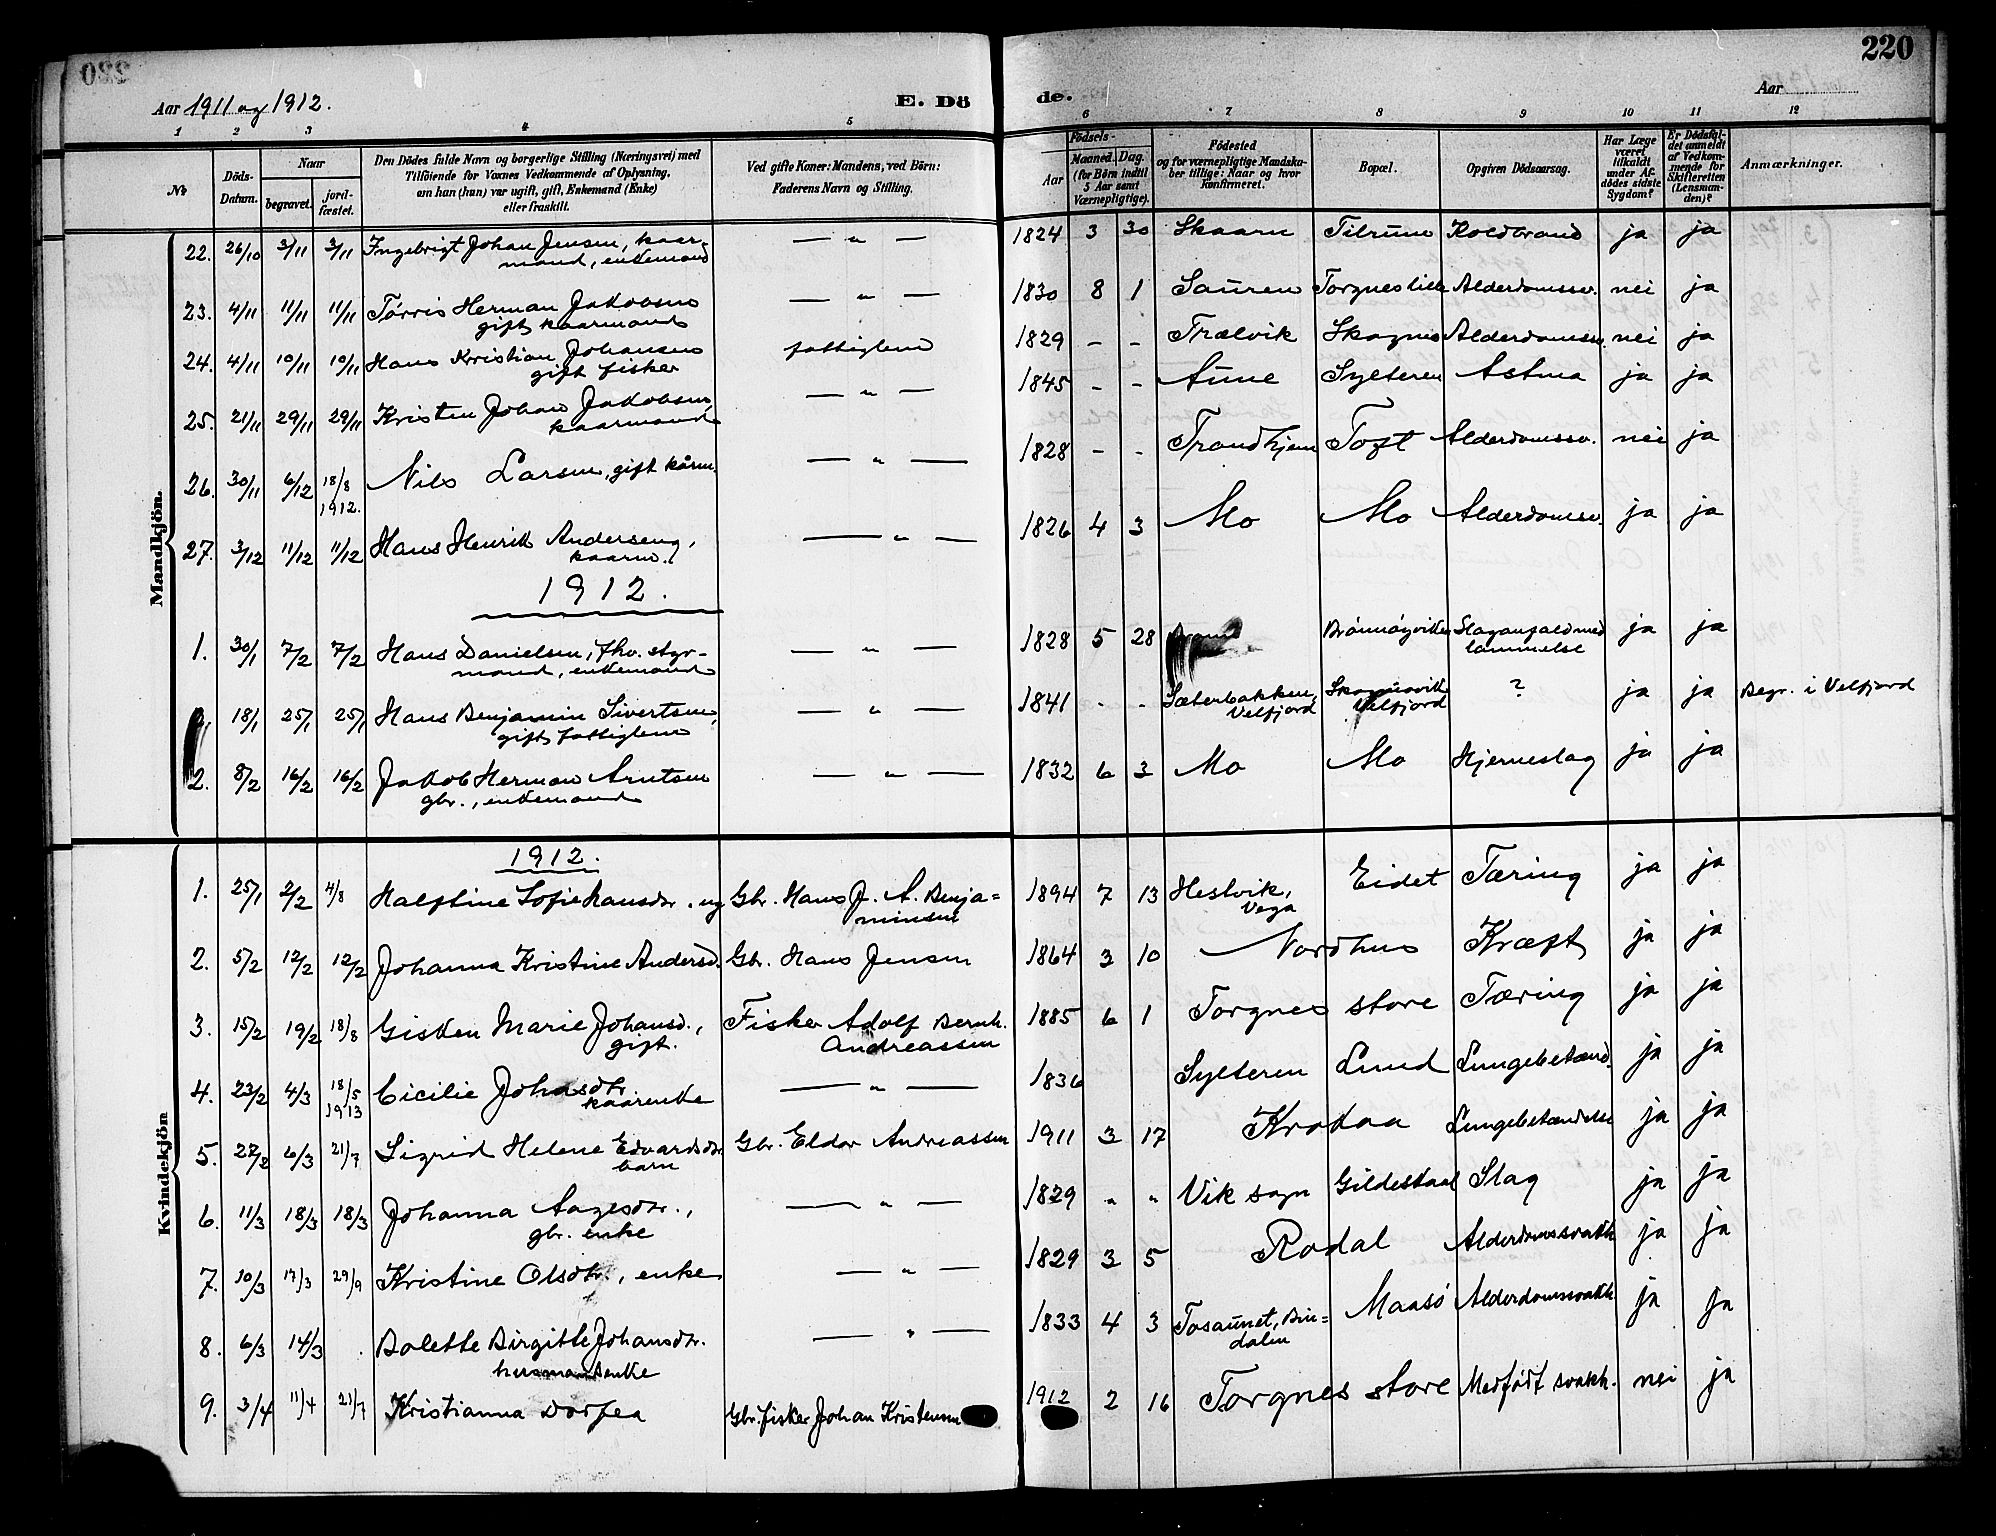 220
Aar 1911 og 1912.
E. Dö de.
Aar
1 2 3 4 5 6 7 8 9 10 11 12
No
Döds-Datum.
Naar
begravet.
jord-fæstet.
Den Dödes fulde Navn og borgerlige Stilling (Næringsvei) med
Tilföiende for Voxnes Vedkommende af Oplysning,
om han (hun) var ugift, gift, Enkemand (Enke)
eller fraskilt.
Ved gifte Koner: Mandens, ved Börn:
Faderens Navn og Stilling.
Födsels-
Aar
Maaned. Dag.
(for Börn indtil
5 Aar samt
Værnepligtige).
Födested
og for værnepligtige Mandska-
ber tillige: Naar og hvor
konfirmeret.
Bopæl.
Opgiven Dödsaarsag.
Har Læge
været
tilkaldt
under Af-
dödes sidste
Sygdom?
Er Dödsfal-
det anmeldt
af Vedkom-
mende for
Skifteretten
(Lensman-
den)?
Anmærkninger.
Mandkjön.
22. 26/10 3/11 3/11 Ingebrigt Johan Jensen, kaar-
mand, enkemand — " — 1824 3 30 Skaarn Tilrum Koldbrand ja ja
23. 4/11 11/11 11/11 Tørris Herman Jakobsen
gift kaarmand — " — 1830 8 1 Sauren Torgnes lille Alderdomssv. nei ja
24. 4/11 10/11 10/11 Hans Kristian Johansen
gift fisker fattiglem 1829 - - Trælvik Skognes Alderdomssv. nei ja
25. 21/11 29/11 29/11 Kristen Johan Jakobsen,
kaarmand — " — 1845 - - Aune Sylteren Astma ja ja
26. 30/11 6/12 18/8
1912. Nils Larsen, gift kårm. — " — 1828 - - Trondhjem Toft Alderdomssv. nei ja
27. 3/12 11/12 11/12 Hans Henrik Anderseng,
kaarm. — " — 1826 4 3 Mo Mo Alderdomssv. ja ja
1912.
1. 30/1 7/2 7/2 Hans Danielsen, fhv. styr-
mand, enkemand — " — 1828 5 28 Brønnøyviken Slaganfald med
lammelse ja ja
18/1 25/1 25/1 Hans Benjamin Sivertsen,
gift, fattiglem — " — 1841 - - Sæterbakken,
Velfjord Velfjord ? ja ja Begr. i Velfjord
2. 8/2 16/2 16/2 Jakob Herman Arntsen
gbr., enkemand — " — 1832 6 3 Mo Mo Hjerneslag ja ja
Kvindekjön
1912.
1. 25/1 2/2 4/8 Halftine Sofie Hansdr. ug Gbr. Hans J. A. Benja=
minsen 1894 7 13 Hestvik,
Vega Eidet Tæring ja ja
2. 5/2 12/2 12/2 Johanna Kristine Andersd. Gbr. Hans Jensen 1864 3 10 Nordhus Kræft ja ja
3. 15/2 19/2 18/8 Gisken Marie Johansd.,
gift. Fisker Adolf Bernh.
Andreassen 1885 6 1 Torgnes store Tæring ja ja
4. 23/2 4/3 18/5
1913 Cicilie Johasdtr.
kaarenke — " — 1836 Sylteren Lund Lungebetænd. ja ja
5. 27/2 6/3 21/7 Sigrid Helene Edvardsdr.
barn Gbr. Eldor Andreassen 1911 3 17 Krokaa Lungebetændelse ja ja
6. 11/3 18/3 18/3 Johanna Aagesdtr.,
gbr. enke — " — 1829 " " Vik sogn Gildestaal Slag ja ja
7. 10/3 17/3 29/9 Kristine Olsdtr., enke — " — 1829 3 5 Rodal Alderdomssvakh. ja ja
8. 6/3 14/3 . Bolette Birgitte Johansdtr.
husmandsenke — " — 1833 4 3 Tosaunet, Bin-
dalen Maasø Alderdomssvakh. ja ja
9. 3/4 11/4 21/7 Kristianna Dorfea Gbr. fisker Johan Kristensen 1912 2 16 Torgnes store Medfødt svakh. nei ja